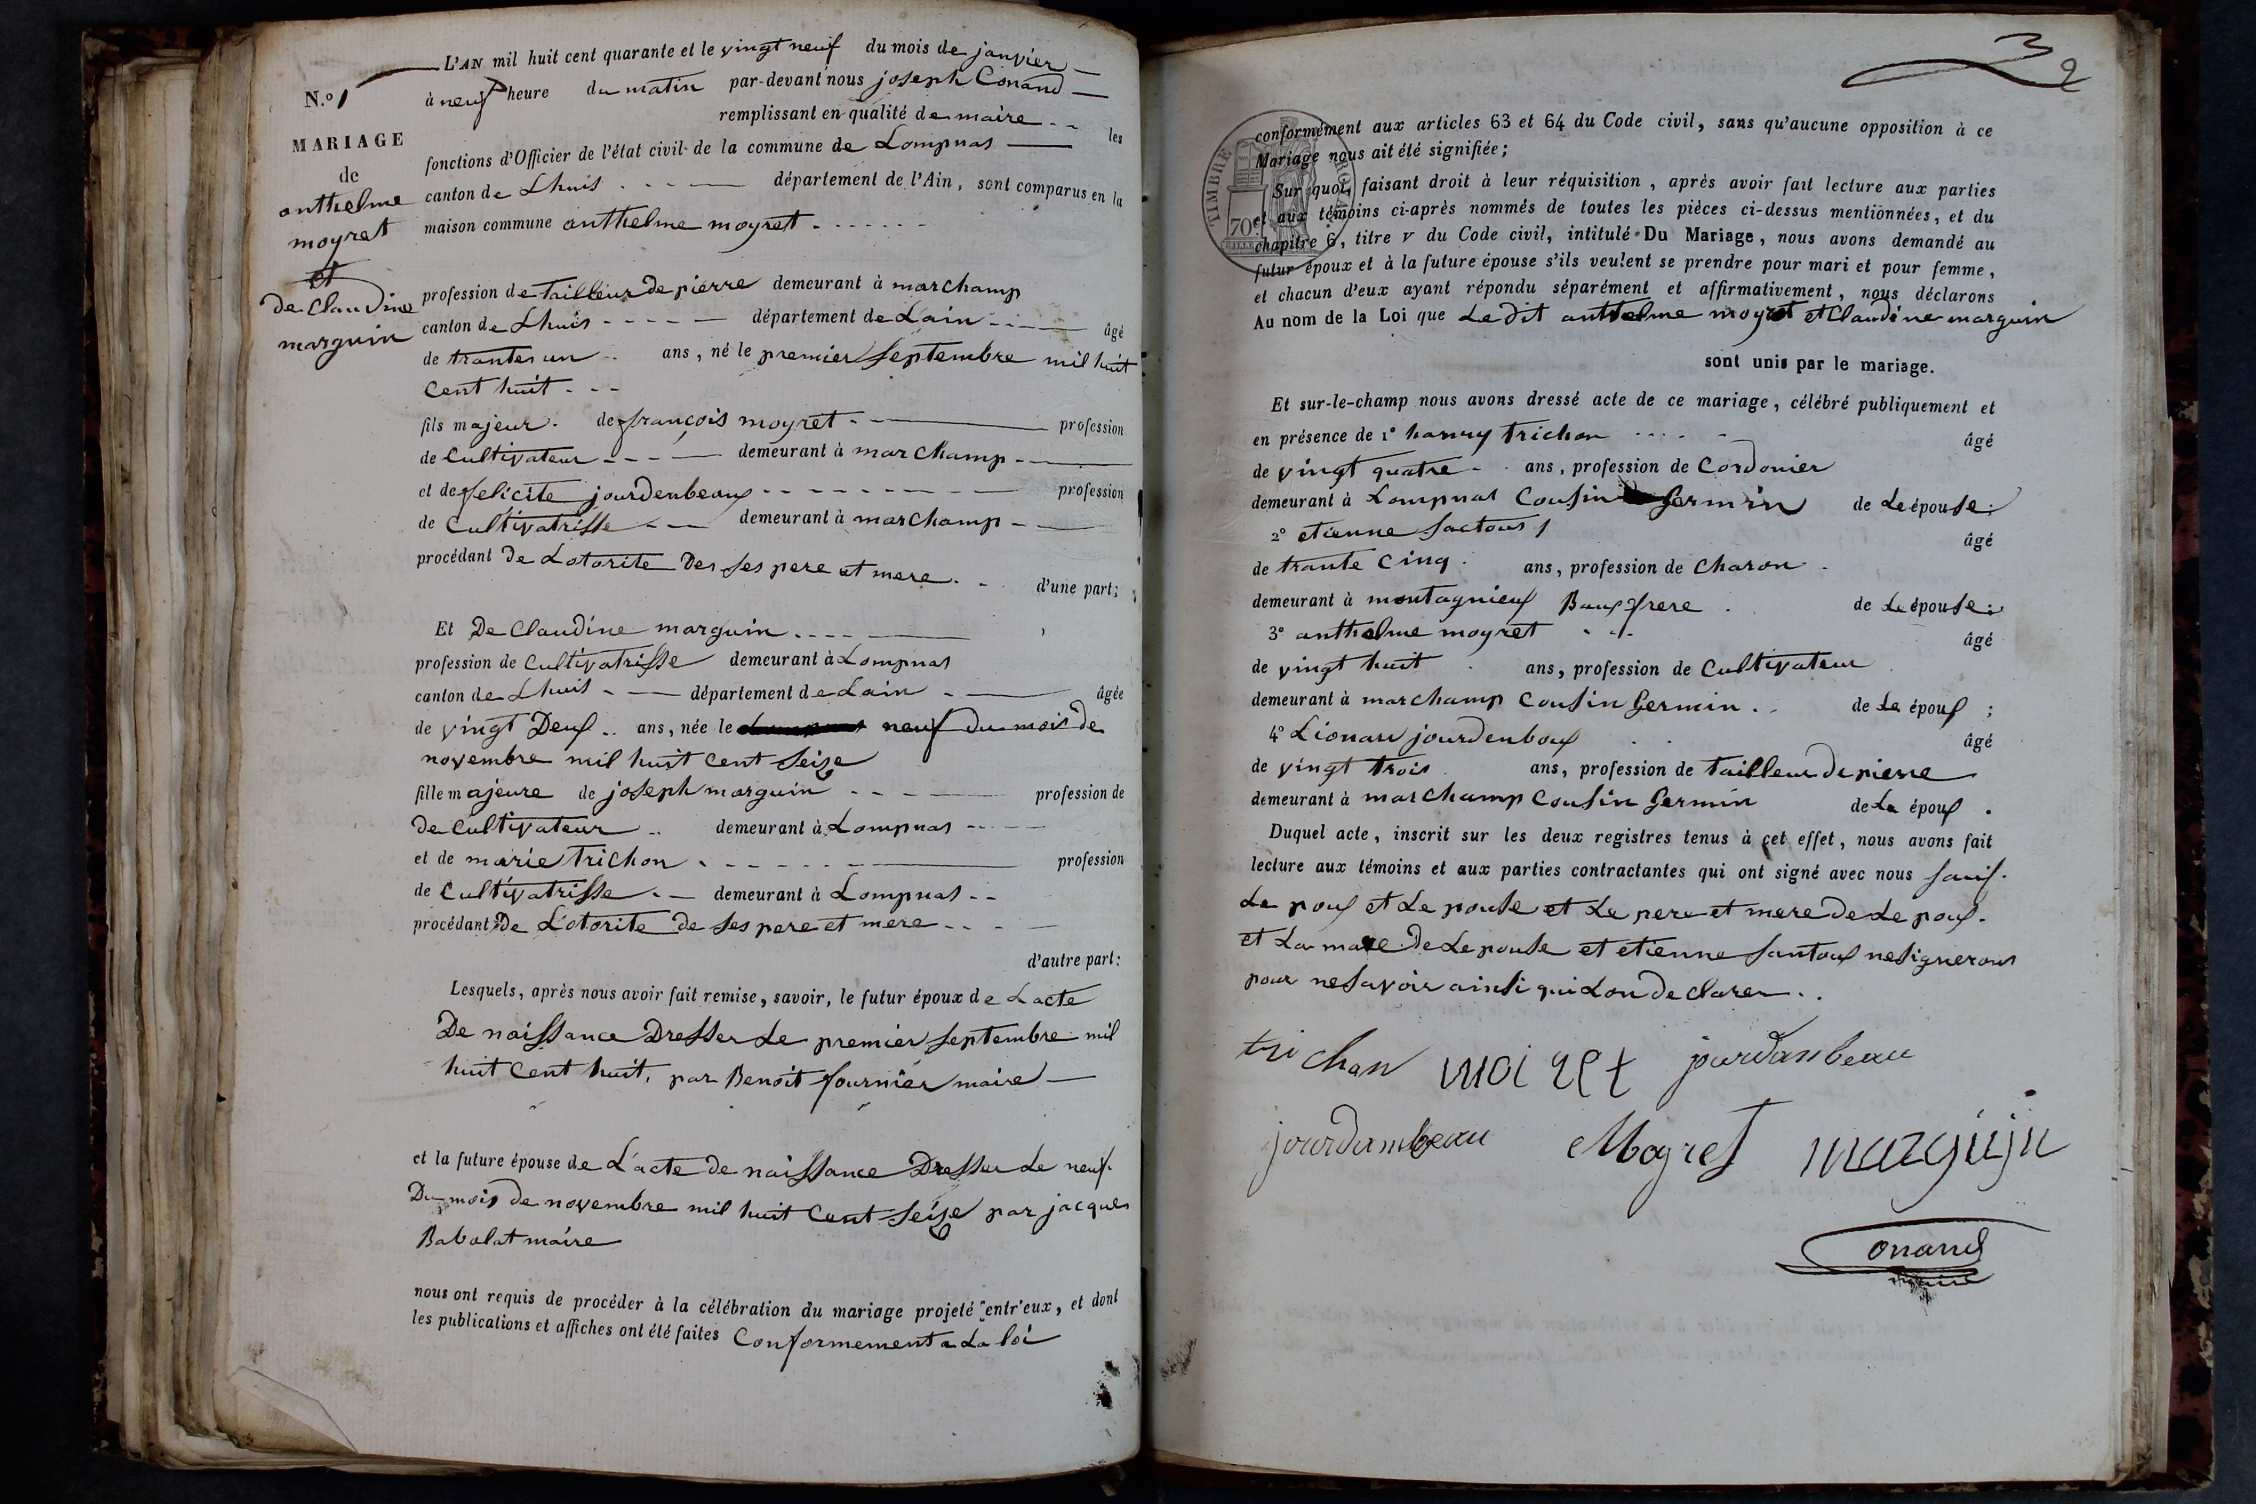 N.º 1
MARIAGE
de
anthelme
moyret
et
de Claudine
marguin
L'AN mil huit cent quarante et le vingt neuf du mois de janvier
à neuf heure du matin par-devant nous joseph Conand
remplissant en qualité de maire les
fonctions d'Officier de l'état civil de la commune de Lompnas
canton de Lhuis département de l'Ain, sont comparus en la
maison commune anthelme moyret
profession de tailleur de pierre demeurant à marchamp
canton de Lhuis département de Lain âgé
de trantes un ans, né le premier septembre mil huit
cent huit
fils majeur de françois moyret profession
de Cultivateur demeurant à marchamp
et de felicite jourdenbeaux profession
de Cultivatrisse demeurant à marchamp
procédant de Lotorite des ses pere et mere d'une part;
Et De Claudine marguin
profession de cultivatrisse demeurant à Lompnas
canton de Lhuis département de Lain âgée
de vingt Deux ans, née le neuf du mois de
novembre mil huit cent seize
fille majeure de joseph marguin profession de
de cultivateur demeurant à Lompnas
et de marie trichon profession
de Cultivatrisse demeurant à Lompnas
procédant De L'otorite de ses pere et mere
d'autre part:
Lesquels, après nous avoir fait remise, savoir, le futur époux de Lacte
De naissance Dresser Le premier septembre mil
huit Cent huit, par Benoit fournier maire
et la future épouse de L'acte de naissance Dresser Le neuf
Du mois de novembre mil huit Cent seize par jacques
Babolat maire
nous ont requis de procéder à la célébration du mariage projeté entr'eux, et dont
les publications et affiches ont été faites Conformement a La loi
2
TIMBRE ROYAL
70c
conformément aux articles 63 et 64 du Code civil, sans qu'aucune opposition à ce
Mariage nous ait été signifiée;
Sur quoi, faisant droit à leur réquisition, après avoir fait lecture aux parties
et aux témoins ci-après nommés de toutes les pièces ci-dessus mentionnées, et du
chapitre 6, titre v du Code civil, intitulé Du Mariage, nous avons demandé au
futur époux et à la future épouse s'ils veulent se prendre pour mari et pour femme,
et chacun d'eux ayant répondu séparément et affirmativement, nous déclarons
Au nom de la Loi que Le dit anthelme moyret et Claudine marguin
sont unis par le mariage.
Et sur-le-champ nous avons dressé acte de ce mariage, célébré publiquement et
en présence de 1º trichon âgé
de vingt quatre ans, profession de Cordonier
demeurant à Lompnas Cousin Germin de Le épouse;
2º etienne âgé
de trante Cinq ans, profession de Charon
demeurant à montagnieux Baux frere de Le épouse;
3º anthelme moyret âgé
de vingt huit ans, profession de Cultivateur
demeurant à marchamp Cousin Germin de Le époux;
4º Lionar jourdenboux âgé
de vingt trois ans, profession de tailleur de pierre
demeurant à marchamp Cousin Germin de Le époux.
Duquel acte, inscrit sur les deux registres tenus à cet effet, nous avons fait
lecture aux témoins et aux parties contractantes qui ont signé avec nous sauf
Le poux et Le pouse et Le pere et mere de Le poux
et La mere de Le pouse et etienne santoux ne signerons
pour ne savoir ainsi qui Lon declarer
trichon moiret jourdanbeau
jourdambeau Moyret marguin
Conand
maire